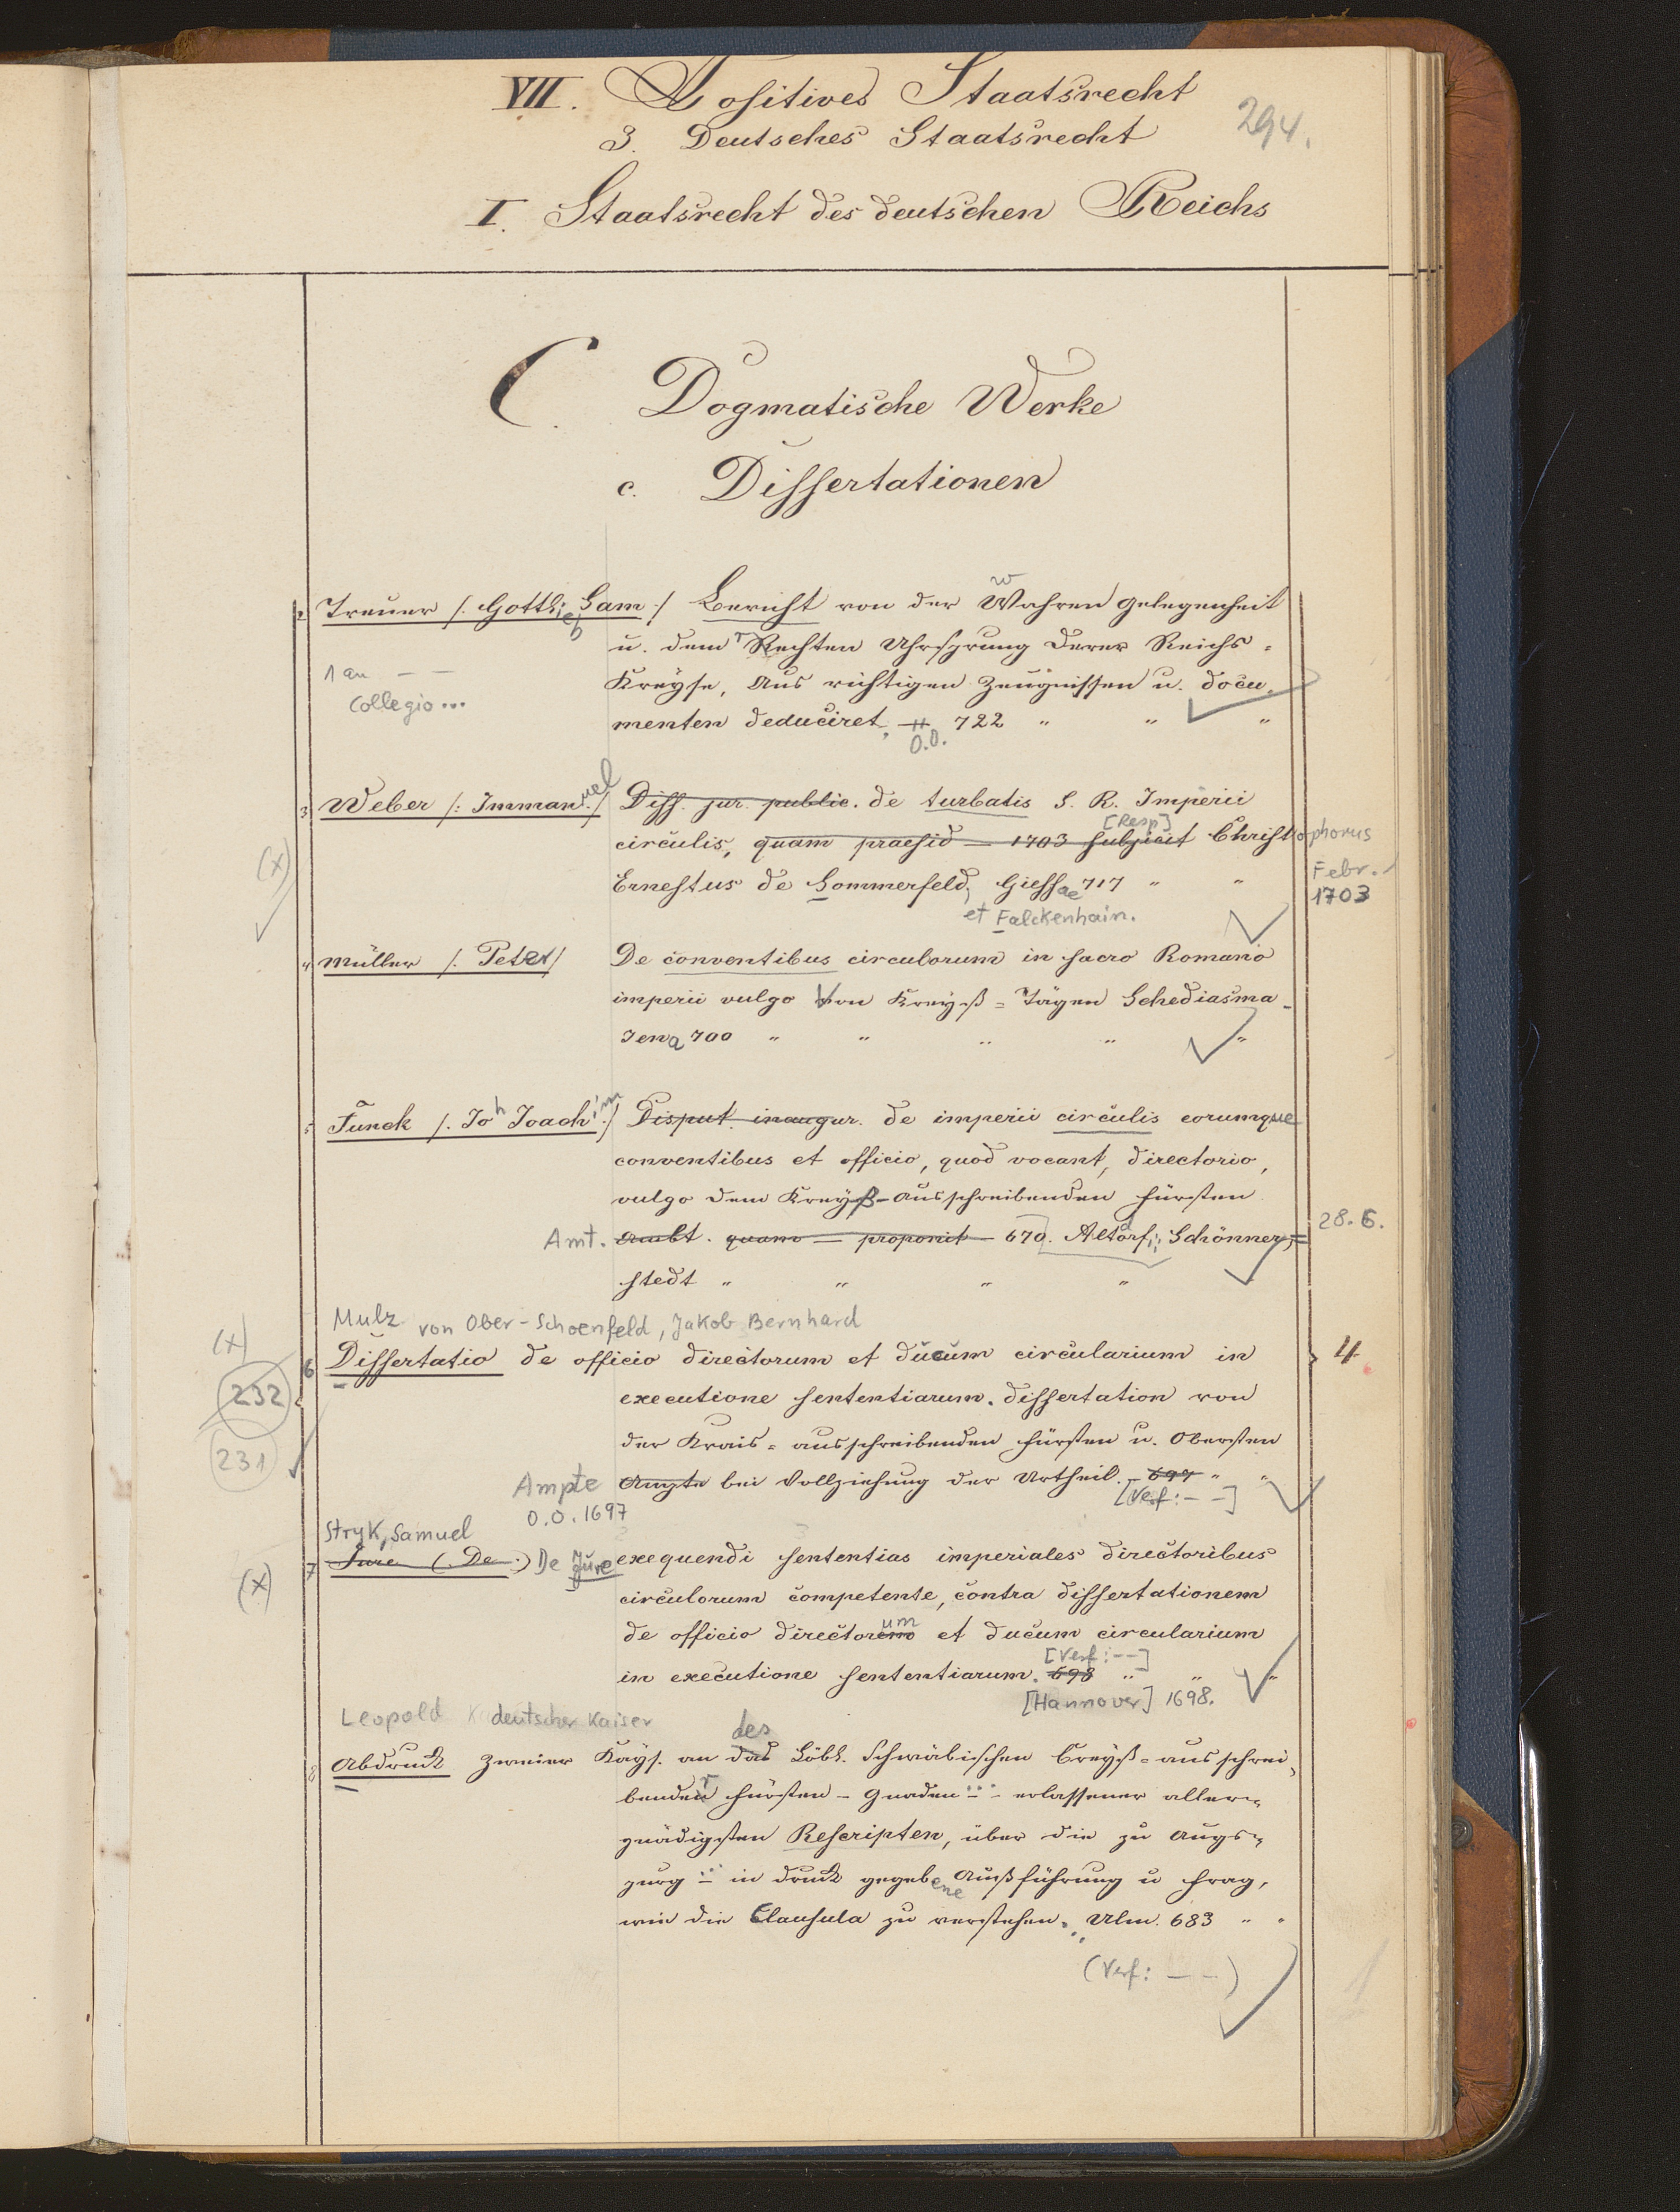 VII. Positives Staatsrecht
294.
3. Deutsches Staatsrecht
I. Staatsrecht des deutschen Reichs
C. Dogmatische Werke
c. Dissertationen
2 Treuer /: Gottlieb Sam :/ Bericht von der Wahren gelegenheit
u. dem Rechten Uhrsprung derer Reichs-
1 an — —
Kreyse, Aus richtigen Zeugnissen u. docu-
Collegio...
menten deduciret. 722 " " "
O.O.
3 Weber /: Immanuel :/ Diss. jur. public. de turbatis S. R. Imperii
[Resp]
circulis, quam praesid — 1703 subjicit Christophorus
(x)
Febr. 1703
Ernestus de Sommerfeld, Giessae 717 " "
et Falckenhain.
4 Müller /: Peter :/ De conventibus circulorum in sacro Romano
imperii vulgo Von Kreyß=Tägen Schediasma
Jena 700 " " " " "
5 Funck /: Joh Joachim :/ Disput. inaugur. de imperii circulis eorumque
conventibus et officio, quod vocant, directorio,
vulgo dem Kreyß-Ausschreibenden Fürsten
28.6.
Amt. Ambt. quam — proponit — 670. Altdorf; Schönner=
stedt " " " "
Mulz von Ober-Schoenfeld, Jakob Bernhard
(x)
6 Dissertatio de officio directorum et ducum circularium in
4
232
executione sententiarum. Dissertation von
231
der Krais=ausschreibenden Fürsten u. Obersten
Ampte Ampte bei Vollziehung der Urtheil. 697 " "
[Verf: — —]
O.O. 1697
Stryk, Samuel
7 Jure (De.) De Jure exequendi sententias imperiales directoribus
(x)
circulorum competente, contra dissertationem
de officio directorum et ducum circularium
[Verf: — —]
in executione sententiarum. 698 " " "
[Hannover] 1698.
Leopold deutscher Kaiser
8 Abdruck zweier Kays. an des Löbl. Schwäbischen Creyß=ausschrei-
benden Fürsten - Gnaden — erlassener aller-
gnädigsten Rescripten, über die zu Augs-
purg — in druck gegebene Außführung u Frag,
wie die Clausula zu verstehen. Ulm. 683 " "
(Verf: — —)